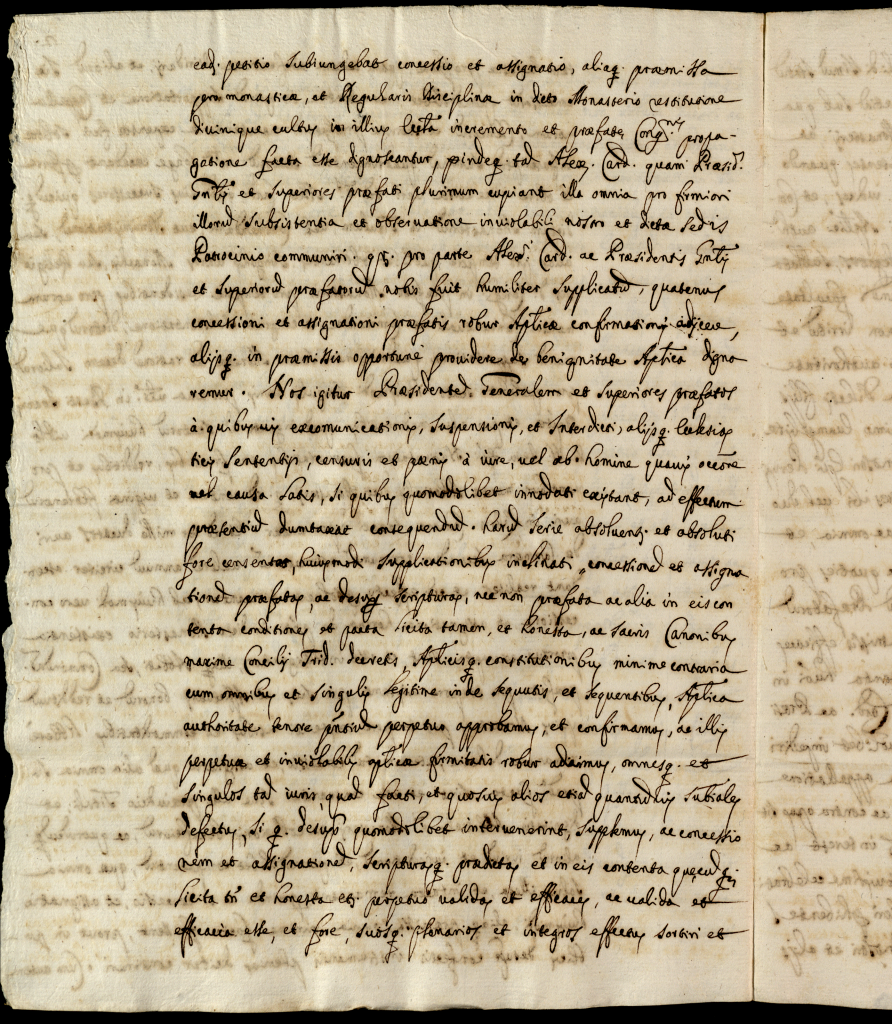 ead. petitio subiungebat concessio et assignatio, aliaq. præmissa
pro monasticæ, et Regularis Disciplinæ in dcto Monasterio restitutione
diuinique cultus in illius Ecctia incremento et præfatæ Congnis propa-
gatione facta esse dignoscantur, proindeq. tad Alex. Card. quam Præsid.
Gnlis et Superiores præfati plurimum cupiant illa omnia pro firmiori
illorud subsistentia et obseruatione inuiolabili nostro et dictæ Sedis
Patrocinio communiri. pro parte Alexi. Card. ac Præsidentis Gnlis
et Superiorud præfatorud nobis fuit humiliter supplicatud, quatenus
concessioni et assignationi præfatis robur Aplicæ confirmationis adjicere,
alijsq. in præmissis opportune prouidere de benignitate Aplica digna
remur. Nos igitur Præsidented. Generalem et Superiores præfatos
à quibusuis excomunicationis, suspensionis, et Interdicti, alijsq. Ecclesias
ticis Sententijs, censuris et pœnis à iure, uel ab homine quauis occone
uel causa latis, si quibus quomodolibet innodati existunt, ad effectum
præsentiud dumtaxat consequendud. harud serie absoluentes et absolutos
fore censentes, huiusmodi supplicationibus inclinati, concessioned et assigna
tioned præfatas, ac desupq. scripturas, nec non præfata ac alia in eis con
tenta conditiones et pacta licita tamen, et honesta, ac sacris Canonibus
maxime Concilij Trid. decretis, Aplicisq. constitutionibus minime contraria
cum omnibus et singulis legitime inde sequutis, et sequentibus, Aplica
authoritate tenore pntiud perpetuo approbamus, et confirmamus, ac illis
perpetuæ et inuiolabilis aplicæ firmitatis robur adijcimus, omnesq. et
singulos tad iuris, quad facti, et quosuis alios etiad quantuduis substales
defectus, si q. desup quomodolibet interuenerint, supplemus, ac concessio
nem et assignationed, scripturasq. prædictas et in eis contenta quæcudq.
licita tn et honesta etc. perpetuo ualidas et efficaces, ac ualida et
efficacia esse, et fore, suosq. plenarios et integros effectus sortiri et